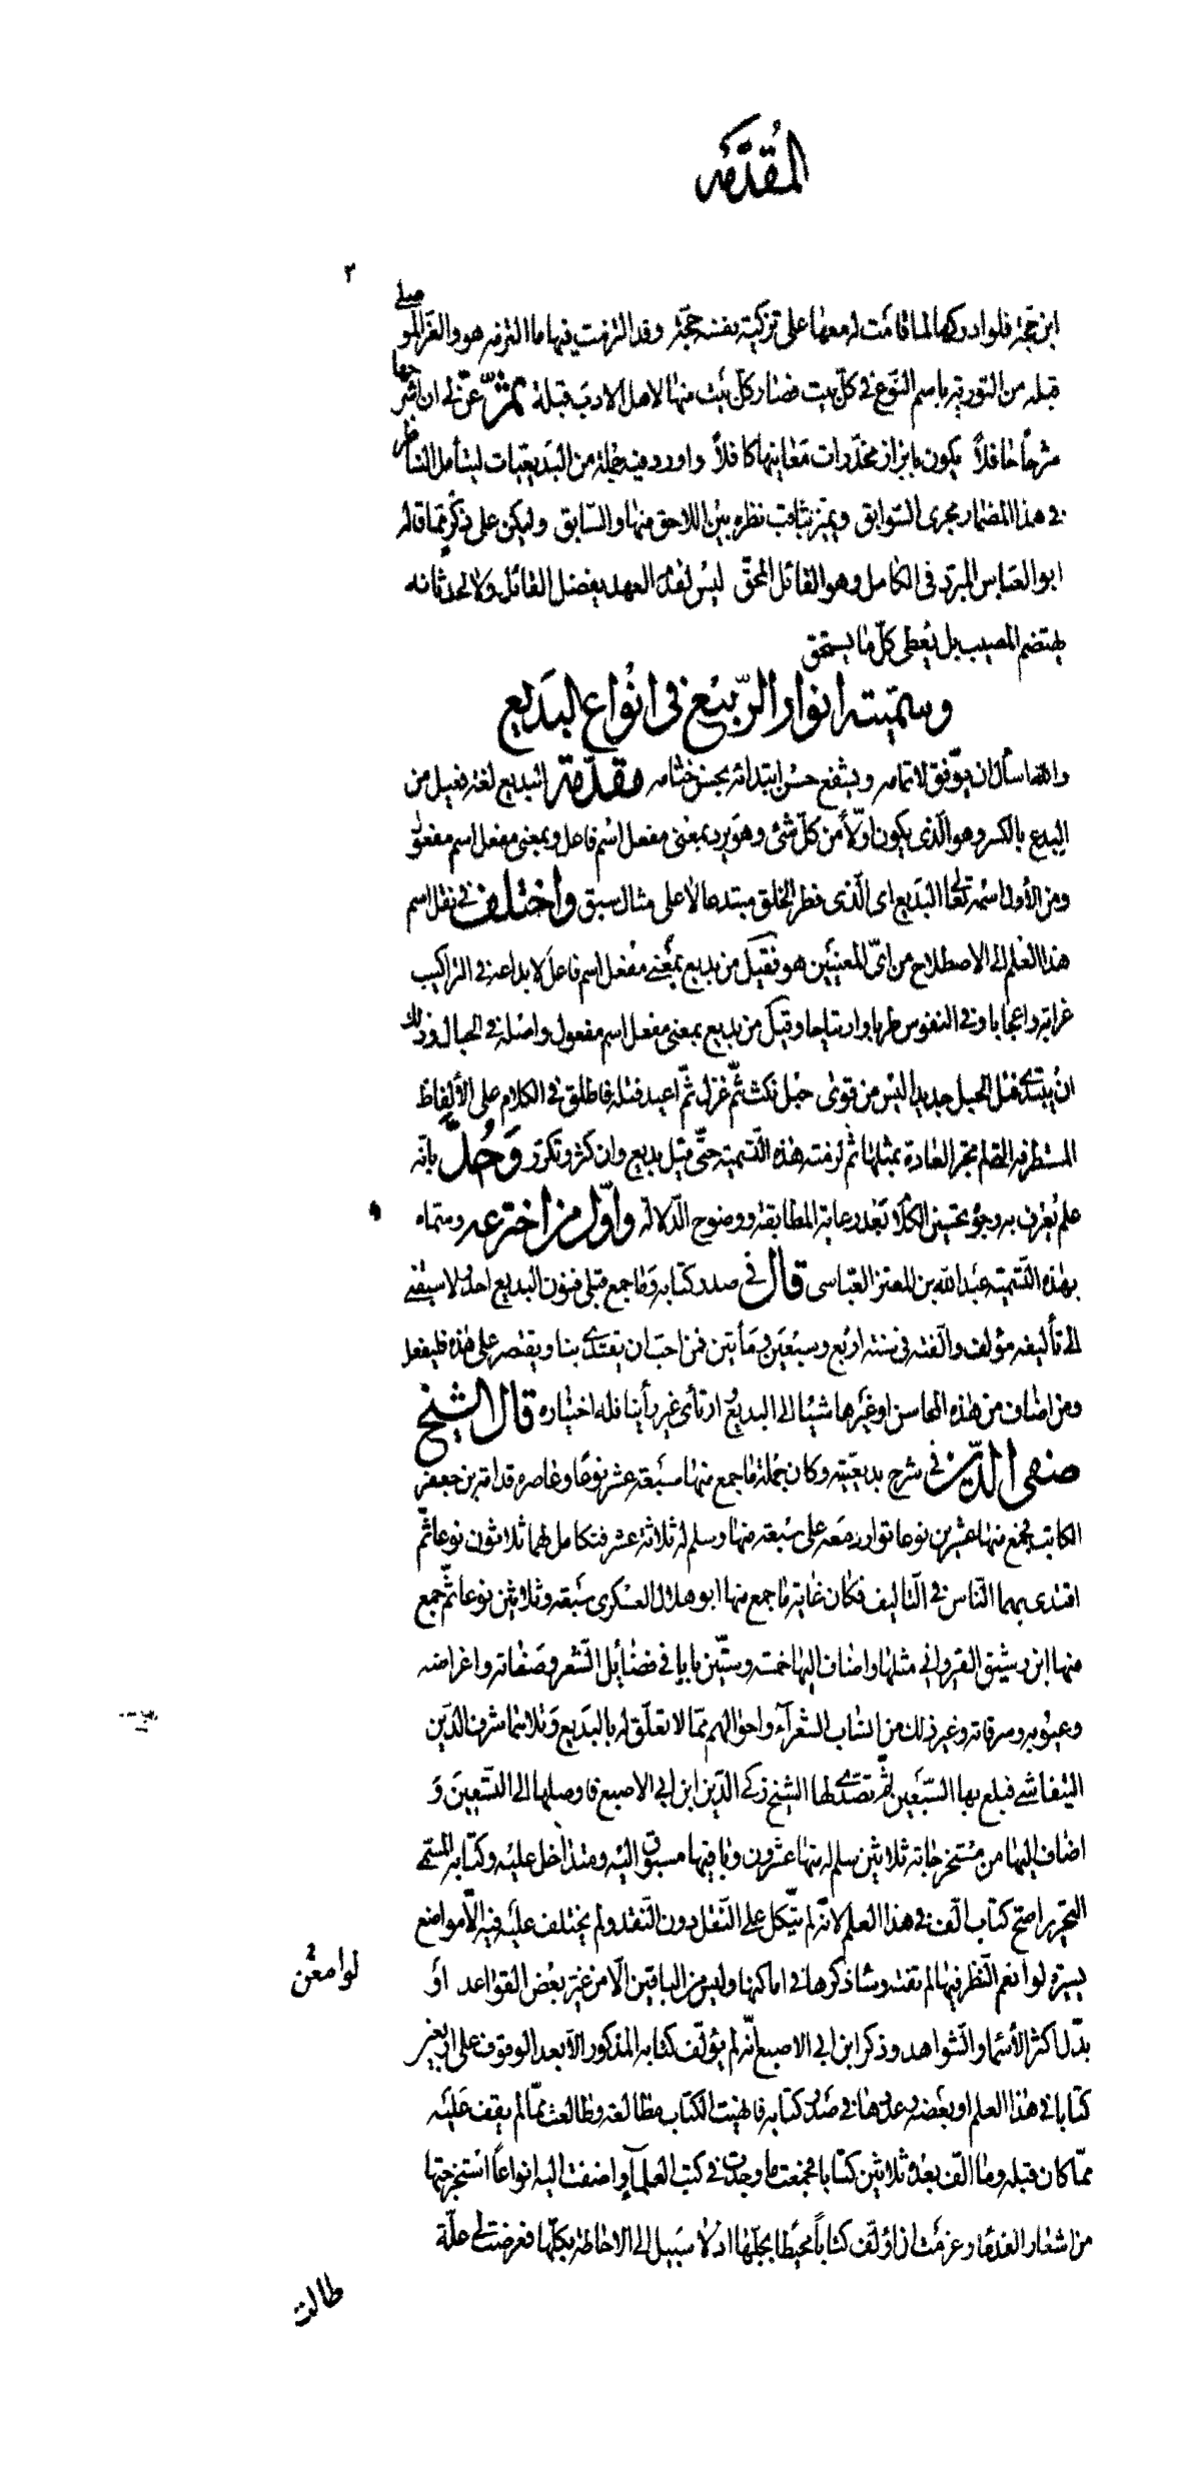 المقدمة
٣
ابن حجة فلو ادركها لما قامت له معها على تزكية نفسه حجة وقد التزمت فيها ما التزمه هو والعز الموصلي
قبله من التورية باسم النوع في كل بيت فصار كل بيت منها لاهل الادب قبلة ثم عن لي ان اشرحها
شرحا حافلا يكون بابراز مخدرات معانيها كافلا واورد فيه جملة من البديعيات ليتأمل الناظر
في هذا المضمار مجرى السوابق ويميز بثاقب نظره بين اللاحق منها والسابق وليكن على ذكر مما قاله
ابو العباس المبرد في الكامل وهو القائل المحق ليس لقدم العهد يفضل القائل ولا لحدثانه
يهتضم المصيب بل يعطى كل ما يستحق
وسميته انوار الربيع في انواع البديع
والله اسأل ان يوفق لاتمامه ويشفع حسن ابتدائه بحسن ختامه مقدمة البديع لغة فعيل من
البدع بالكسر وهو الذي يكون اولا من كل شئ وهو يرد بمعنى مفعل اسم فاعل وبمعنى مفعل اسم مفعول
ومن الأول اسمه تعالى البديع اى الذى فطر الخلق مبتدعا لا على مثال سبق واختلف في نقل اسم
هذا العلم الى الاصطلاح من اى المعنيين هو فقيل من بديع بمعنى مفعل اسم فاعل لابداعه في التراكيب
غرابة واعجابا وفي النفوس طربا وارتياحا وقيل من بديع بمعنى مفعل اسم مفعول واصله في الحبال وذلك
ان يبتدئ فتل الحبل جديدا ليس من قوى حبل نكث ثم غزل ثم اعيد فتله فاطلق في الكلام على الألفاظ
المستطرفة لم تجر العادة بمثلها ثم لزمته هذه التسمية حتى قيل بديع وان كثر وتكرر وحد بانه
علم يعرف به وجوه تحسين الكلام بعد رعاية المطابقة ووضوح الدلالة واول من اخترعه وسماه
بهذه التسمية عبد الله بن المعتز العباسى قال في صدر كتابه وما جمع قبلى فنون البديع احد ولا سبقنى
الى تأليفه مؤلف والفته في سنة اربع وسبعين ومأتين فمن احب ان يقتدى بنا ويقتصر على هذه فليفعل
ومن اضاف من هذه المحاسن او غيرها شيئا الى البديع وارتأى غير رأينا فله اختياره قال الشيخ
صفى الدين في شرح بديعيته وكان جملة ما جمع منها سبعة عشر نوعا وعاصره قدامة بن جعفر
الكاتب فجمع منها عشرين نوعا توارد معه على سبعة منها وسلم له ثلاثة عشر فتكامل لهما ثلاثون نوعا ثم
اقتدى بهما الناس في التاليف فكان غاية ما جمع منها ابو هلال العسكرى سبعة وثلاثين نوعا ثم جمع
منها ابن رشيق القيرواني مثلها واضاف اليها خمسة وستين بابا في فضائل الشعر وصفاته واغراضه
وعيوبه وسرقاته وغير ذلك من انساب الشعرآء واحوالهم مما لا تعلق له بالبديع وتلاهما شرف الدين
التيفاشى فبلغ بها السبعين ثم تصدى لها الشيخ زكى الدين ابن ابي الاصبع فاوصلها الى التسعين و
اضاف اليها من مستخرجاته ثلاثين سلم له منها عشرون وباقيها مسبوق اليه ومتداخل عليه وكتابه المسمى
التحرير اصح كتاب الف في هذا العلم لانه لم يتكل على النقل دون النقد ولم يختلف عليه فيه الا مواضع
يسيرة لو انعم النظر فيها لم تفته وسأذكرها في اماكنها وليس من الباقين الا من غير بعض القواعد او
لو امعن
بدل اكثر الأسماء والشواهد وذكر ابن ابي الاصبع انه لم يؤلف كتابه المذكور الا بعد الوقوف على اربعين
كتابا في هذا العلم او بعضه وعدها في صدر كتابه فانهيت الكتاب مطالعة وطالعت مما لم يقف عليه
مما كان قبله وما الف بعده ثلاثين كتابا فجمعت ما وجدت في كتب العلمآء واضفت اليه انواعا استخرجتها
من اشعار القدما وعزمت ان اؤلف كتابا محيطا بجلها اذ لا سبيل الى الاحاطة بكلها فعرضت لي علة
طالت